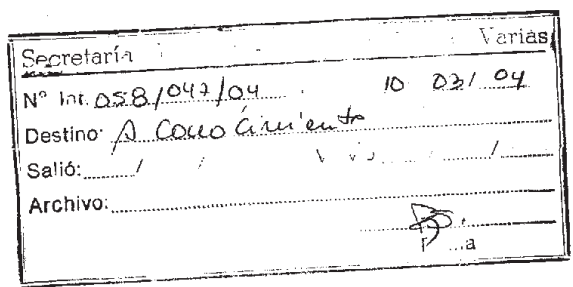 Secretaría Varias
N° Int. 058/047/04 10 03/ 04
Destino: A Conocimiento
Salió: / / /
Archivo: